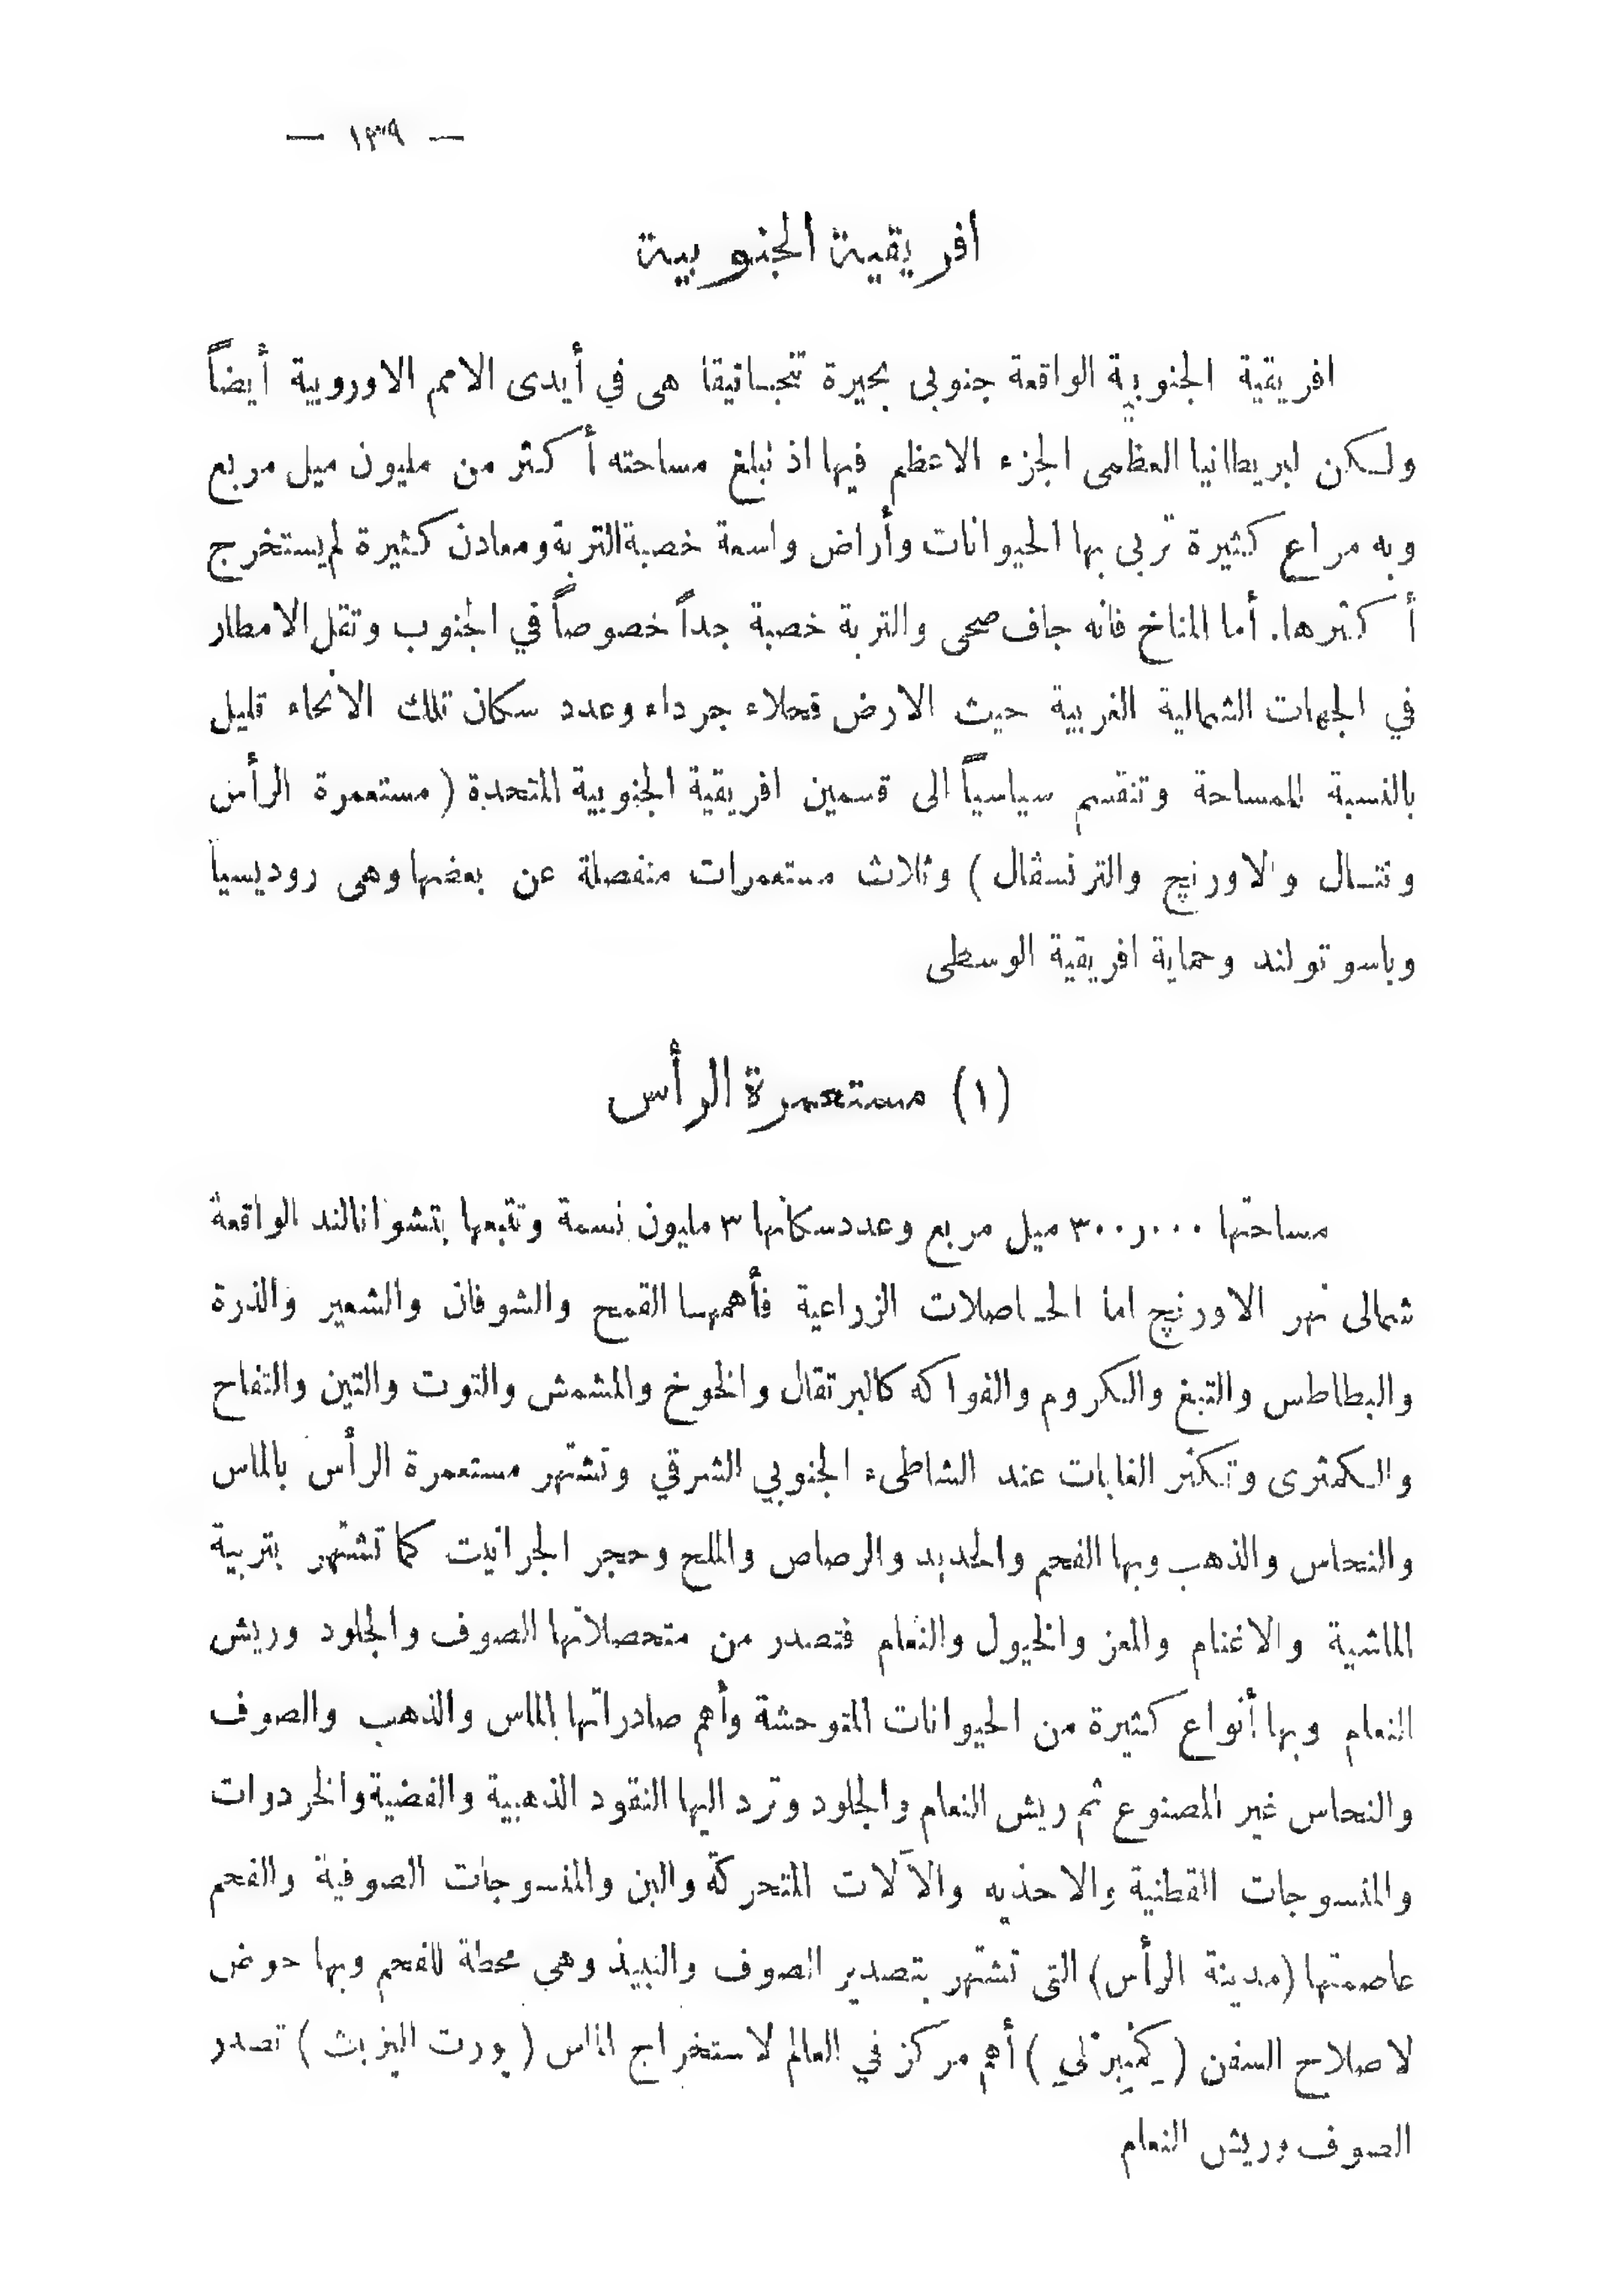 — ١٣٩ —
افريقية الجنوبية
افريقية الجنوبية الواقعة جنوبى بحيرة تنجانيقا هى في أيدى الامم الاوروبية أيضاً
ولكن لبريطانيا العظمى الجزء الاعظم فيها اذ تبلغ مساحته أكثر من مليون ميل مربع
وبه مراع كثيرة تربى بها الحيوانات وأراض واسعة خصبة التربة ومعادن كثيرة لم يستخرج
أكثرها. أما المناخ فانه جاف صحى والتربة خصبة جداً خصوصاً في الجنوب وتقل الامطار
في الجهات الشمالية الغربية حيث الارض قحلاء جرداء وعدد سكان تلك الانحاء قليل
بالنسبة للمساحة وتنقسم سياسياً الى قسمين افريقية الجنوبية المتحدة (مستعمرة الرأس
ونتال والاورنچ والترنسڤال) وثلاث مستعمرات منفصلة عن بعضها وهى روديسيا
وباسوتولند وحماية افريقية الوسطى
(١) مستعمرة الرأس
مساحتها ٣٠٠ر٠٠٠ ميل مربع وعدد سكانها ٣ مليون نسمة وتتبعها بتشوانالند الواقعة
شمالى نهر الاورنچ اما الحاصلات الزراعية فأهمها القمح والشوفان والشعير والذرة
والبطاطس والتبغ والكروم والفواكه كالبرتقال والخوخ والمشمش والتوت والتين والتفاح
والكمثرى وتكثر الغابات عند الشاطىء الجنوبي الشرقي وتشتهر مستعمرة الرأس بالماس
والنحاس والذهب وبها الفحم والحديد والرصاص والملح وحجر الجرانيت كما تشتهر بتربية
الماشية والاغنام والمعز والخيول والنعام فتصدر من متحصلاتها الصوف والجلود وريش
النعام وبها أنواع كثيرة من الحيوانات المتوحشة وأهم صادراتها الماس والذهب والصوف
والنحاس غير المصنوع ثم ريش النعام والجلود وترد اليها النقود الذهبية والفضية والخردوات
والمنسوجات القطنية والاحذيه والآلات المتحركة والبن والمنسوجات الصوفية والفحم
عاصمتها (مدينة الرأس) التى تشتهر بتصدير الصوف والنبيذ وهي محطة للفحم وبها حوض
لاصلاح السفن (كِمْبِرْلي) أهم مركز في العالم لاستخراج الماس (پورت اليزبث) تصدر
الصوف وريش النعام